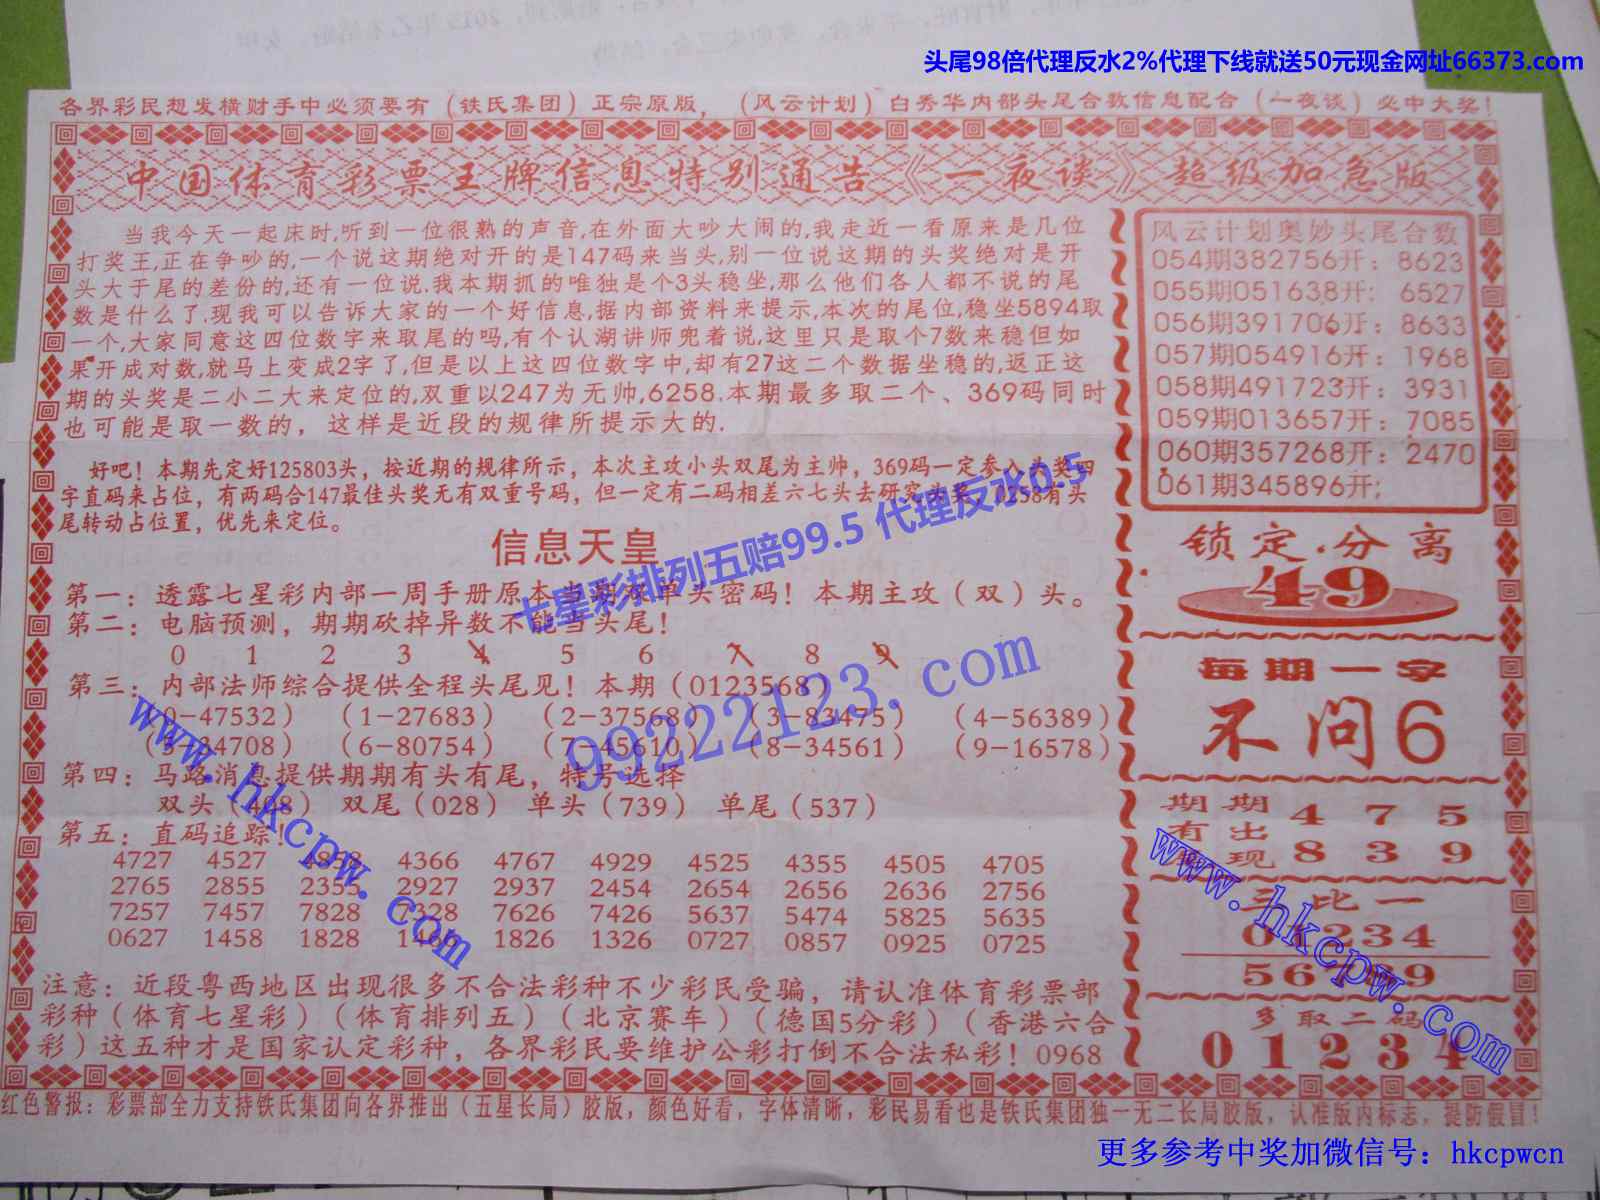 头尾98倍代理反水2%代理下线就送50元现金网址66373.com
各界彩民想发横财手中必须要有（铁氏集团）正宗原版，（风云计划）白秀华内部头尾合数信息配合（一夜谈）必中大奖！
中国体育彩票王牌信息特别通告《一夜谈》超级加急版
当我今天一起床时,听到一位很熟的声音,在外面大吵大闹的,我走近一看原来是几位
打奖王,正在争吵的,一个说这期绝对开的是147码来当头,别一位说这期的头奖绝对是开
头大于尾的差份的,还有一位说.我本期抓的唯独是个3头稳坐,那么他们各人都不说的尾
数是什么了.现我可以告诉大家的一个好信息,据内部资料来提示,本次的尾位,稳坐5894取
一个,大家同意这四位数字来取尾的吗,有个认湖讲师兜着说,这里只是取个7数来稳但如
果开成对数,就马上变成2字了,但是以上这四位数字中,却有27这二个数据坐稳的,返正这
期的头奖是二小二大来定位的,双重以247为无帅,6258.本期最多取二个、369码同时
也可能是取一数的，这样是近段的规律所提示大的.
好吧！本期先定好125803头，按近期的规律所示，本次主攻小头双尾为主帅，369码一定参入头奖四
字直码来占位，有两码合147最佳头奖无有双重号码，但一定有二码相差六七头去研究 0258有头
尾转动占位置，优先来定位。
信息天皇
七星彩排列五赔99.5 代理反水0.5
第一：透露七星彩内部一周手册原本当期双单头密码！本期主攻（双）头。
第二：电脑预测，期期砍掉异数不能当头尾！
0 1 2 3 4 5 6 7 8 9
第三：内部法师综合提供全程头尾见！本期（0123568）
（0-47532）（1-27683）（2-37568）（3-83475）（4-56389）
（5-24708）（6-80754）（7-45610）（8-34561）（9-16578）
第四：马路消息提供期期有头有尾，特号选择
双头（408） 双尾（028） 单头（739） 单尾（537）
第五：直码追踪！
4727 4527 4858 4366 4767 4929 4525 4355 4505 4705
2765 2855 2355 2927 2937 2454 2654 2656 2636 2756
7257 7457 7828 7328 7626 7426 5637 5474 5825 5635
0627 1458 1828 1466 1826 1326 0727 0857 0925 0725
注意：近段粤西地区出现很多不合法彩种不少彩民受骗，请认准体育彩票部
彩种（体育七星彩）（体育排列五）（北京赛车）（德国5分彩）（香港六合
彩）这五种才是国家认定彩种，各界彩民要维护公彩打倒不合法私彩！0968
风云计划奥妙头尾合数
054期382756开：8623
055期051638开：6527
056期391706开：8633
057期054916开：1968
058期491723开：3931
059期013657开：7085
060期357268开：2470
061期345896开；
锁定.分离
49
每期一字
不问6
期期 4 7 5
有出
现 8 3 9
三比一
01234
56789
多取二码
01234
www.hkcpw.com
99222123.com
www.hkcpw.com
红色警报：彩票部全力支持铁氏集团向各界推出（五星长局）胶版，颜色好看，字体清晰，彩民易看也是铁氏集团独一无二长局胶版，认准版内标志，提防假冒！
更多参考中奖加微信号：hkcpwcn